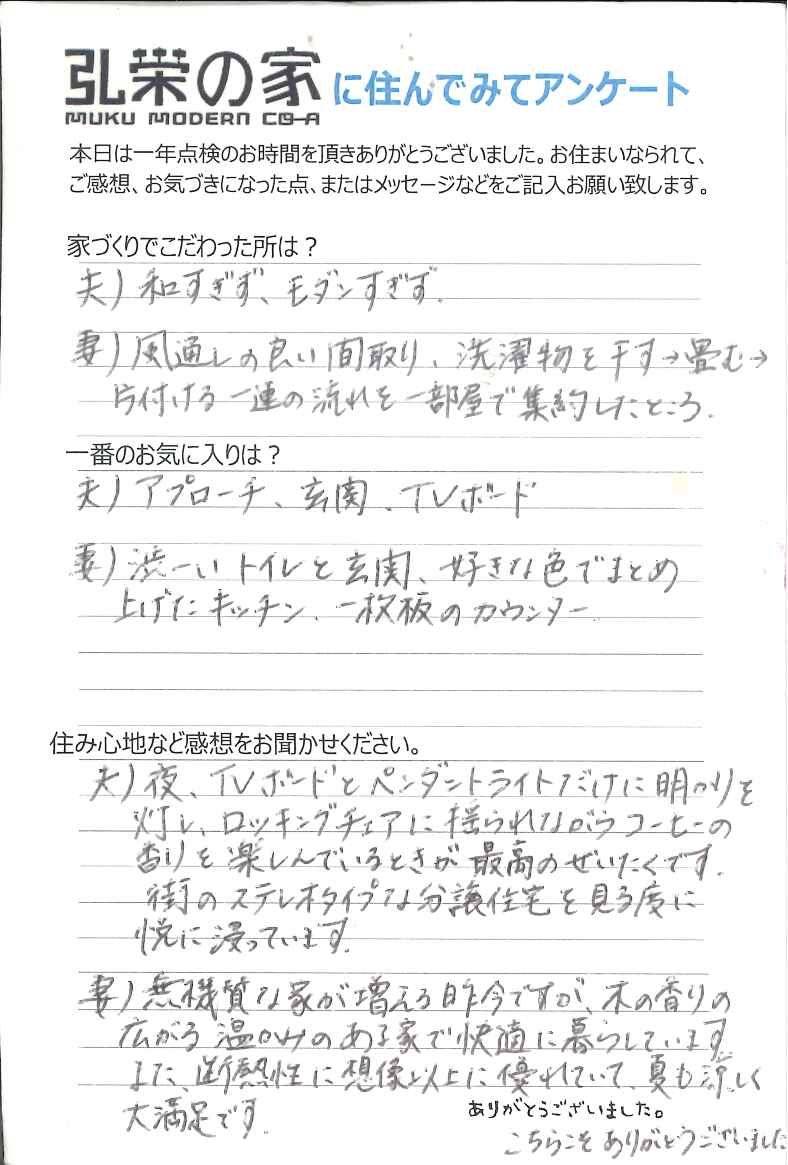 弘栄の家に住んでみてアンケート
MUKU MODERN CO-A
本日は一年点検のお時間を頂きありがとうございました。お住まいなられて、
ご感想、お気づきになった点、またはメッセージなどをご記入お願い致します。
家づくりでこだわった所は？
夫）和すぎず、モダンすぎず.
妻）風通しの良い間取り、洗濯物を干す→畳む→
片付ける一連の流れを一部屋で集約したところ.
一番のお気に入りは？
夫）アプローチ、玄関、TVボード
妻）渋ーいトイレと玄関、好きな色でまとめ
上げたキッチン、一枚板のカウンター.
住み心地など感想をお聞かせください。
夫）夜、TVボードとペンダントライトだけに明かりを
灯し、ロッキングチェアに揺られながらコーヒーの
香りを楽しんでいるときが最高のぜいたくです.
街のステレオタイプな分譲住宅を見る度に
悦に浸っています.
妻）無機質な家が増える昨今ですが、木の香りの
広がる温かみのある家で快適に暮らしています.
また、断熱性に想像以上に優れていて、夏も涼しく
大満足です.
ありがとうございました。
こちらこそありがとうございました